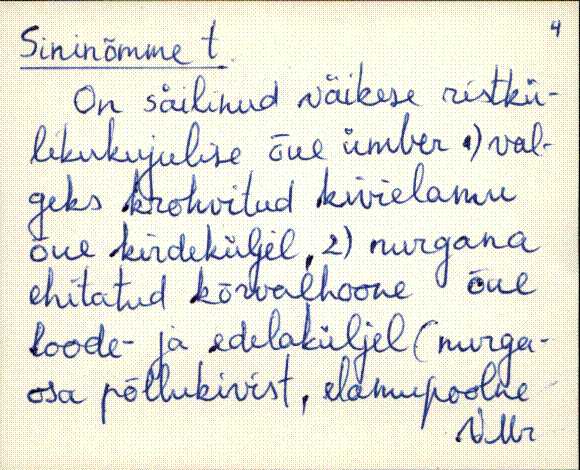 4
Sininõmme t.
On säilinud väikese ristkü-
likukujulise õue ümber 1) val-
geks krohvitud kivielamu
õue kirdeküljel, 2) nurgana
ehitatud kõrvalhoone õue
loode- ja edelaküljel (nurga-
osa põllukivist, elamupoolne